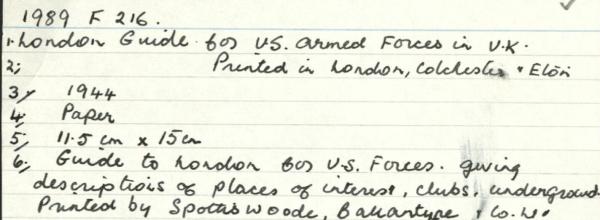 1989 F 216.
1. London Guide for U.S. armed Forces in U.K.
2; Printed in London, Colchester & Eton
3, 1944
4, Paper
5, 11.5 cm x 15cm
6, Guide to London for U.S. Forces. giving
descriptions of places of interest, clubs, underground.
Printed by Spottiswoode, Ballantyne, Co.